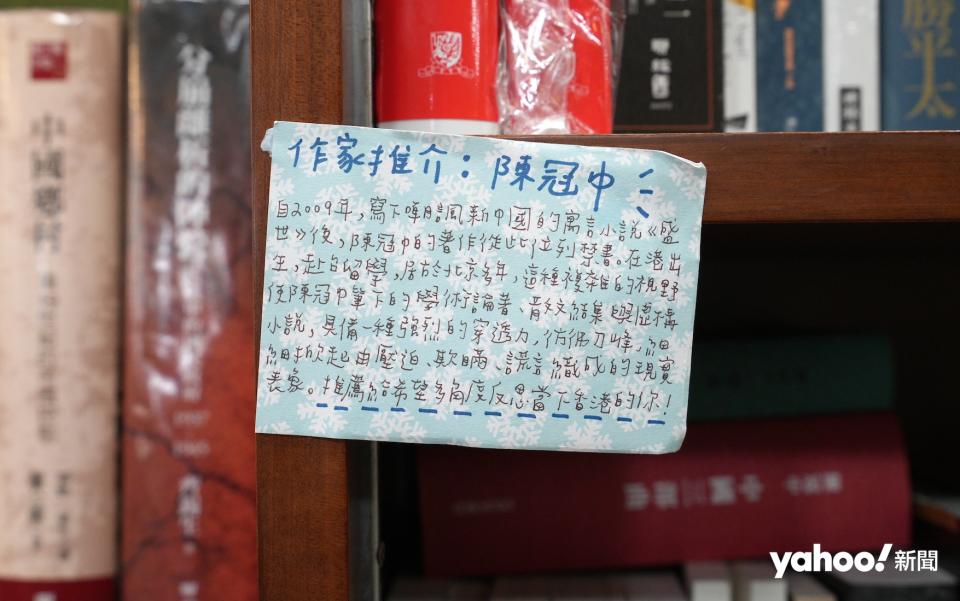 作家推介：陳冠中
自2009年，寫下嘲諷新中國的寓言小說《盛
世》後，陳冠中的著作從此位列禁書。在港出
生，赴台留學，居於北京多年，這種複雜的視野
使陳冠中筆下的學術論著、散文結集與虛構
小說，具備一種強烈的穿透力，彷彿刀鋒，細
細挑起由壓迫、欺瞞、謊言織成的現實
表象。推薦給希望多角度反思當下香港的你！
中國鄉村
分崩離析的
勝平太
中國
yahoo!新聞